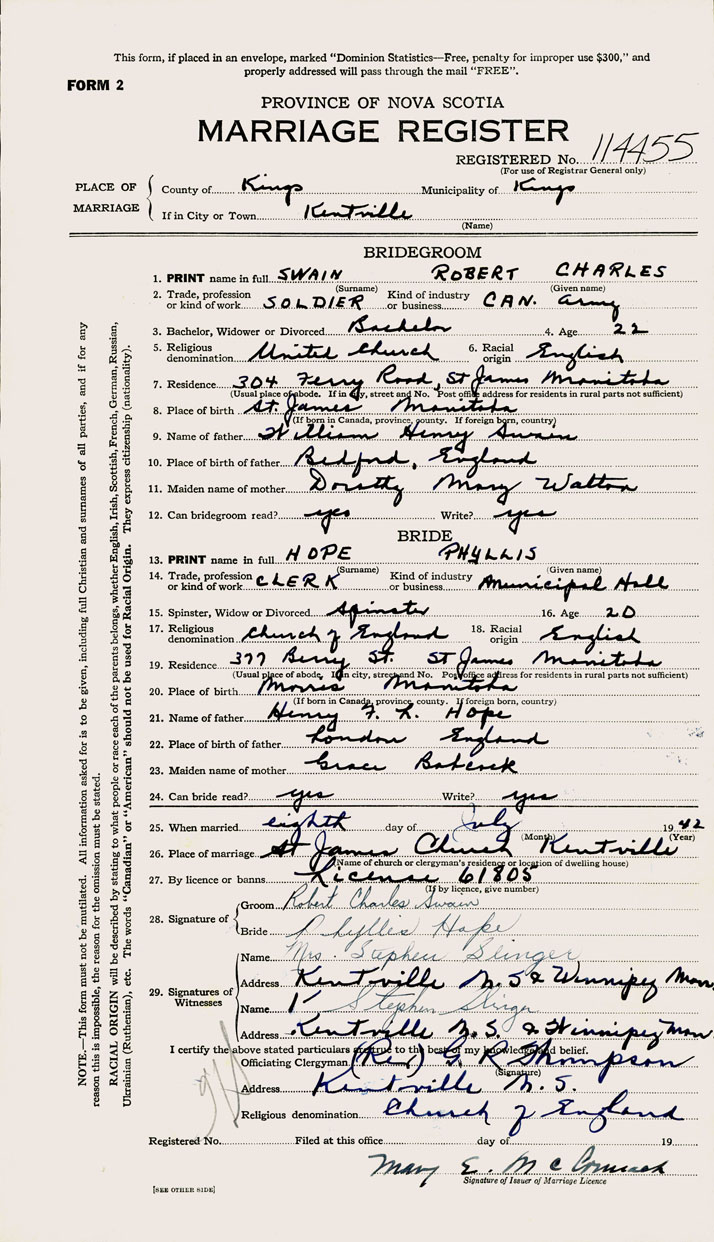 This form, if placed in an envelope, marked "Dominion Statistics—Free, penalty for improper use $300," and
properly addressed will pass through the mail "FREE".
FORM 2
PROVINCE OF NOVA SCOTIA
MARRIAGE REGISTER
REGISTERED No. 114455
(For use of Registrar General only)
PLACE OF MARRIAGE
County of Kings Municipality of Kings
If in City or Town Kentville
(Name)
BRIDEGROOM
1. PRINT name in full SWAIN ROBERT CHARLES
(Surname) (Given name)
2. Trade, profession or kind of work SOLDIER Kind of industry or business CAN. Army
3. Bachelor, Widower or Divorced Bachelor 4. Age 22
5. Religious denomination United Church 6. Racial origin English
7. Residence 304 Ferry Road, St James Manitoba
(Usual place of abode. If in city, street and No. Post office address for residents in rural parts not sufficient)
8. Place of birth St. James Manitoba
(If born in Canada, province, county. If foreign born, country)
9. Name of father William Henry Swain
10. Place of birth of father Bedford, England
11. Maiden name of mother Dorothy Mary Walton
12. Can bridegroom read? yes Write? yes
BRIDE
13. PRINT name in full HOPE PHYLLIS
(Surname) (Given name)
14. Trade, profession or kind of work CLERK Kind of industry or business Municipal Hall
15. Spinster, Widow or Divorced Spinster 16. Age 20
17. Religious denomination Church of England 18. Racial origin English
19. Residence 377 Berry St. St James Manitoba
(Usual place of abode. If in city, street and No. Post office address for residents in rural parts not sufficient)
20. Place of birth Morris Manitoba
(If born in Canada, province, county. If foreign born, country)
21. Name of father Henry F. L. Hope
22. Place of birth of father London England
23. Maiden name of mother Grace Babcock
24. Can bride read? yes Write? yes
25. When married eighth day of July 1942
(Month) (Year)
26. Place of marriage St James Church Kentville
(Name of church or clergyman's residence or location of dwelling house)
27. By licence or banns License 61805
(If by licence, give number)
28. Signature of
Groom Robert Charles Swain
Bride Phyllis Hope
29. Signatures of Witnesses
Name Mrs. Stephen Slinger
Address Kentville N.S & Winnipeg Man
Name Stephen Slinger
Address Kentville N.S. & Winnipeg Man
I certify the above stated particulars are true to the best of my knowledge and belief.
Officiating Clergyman (Rev) G R Thompson
(Signature)
Address Kentville N.S.
Religious denomination Church of England
Registered No. Filed at this office day of 19
Mary E. McCormack
Signature of Issuer of Marriage Licence
[SEE OTHER SIDE]
NOTE.—This form must not be mutilated. All information asked for is to be given, including full Christian and surnames of all parties, and if for any
reason this is impossible, the reason for the omission must be stated.
RACIAL ORIGIN will be described by stating to what people or race each of the parents belongs, whether English, Irish, Scottish, French, German, Russian,
Ukrainian (Ruthenian), etc. The words "Canadian" or "American" should not be used for Racial Origin. They express citizenship (nationality).